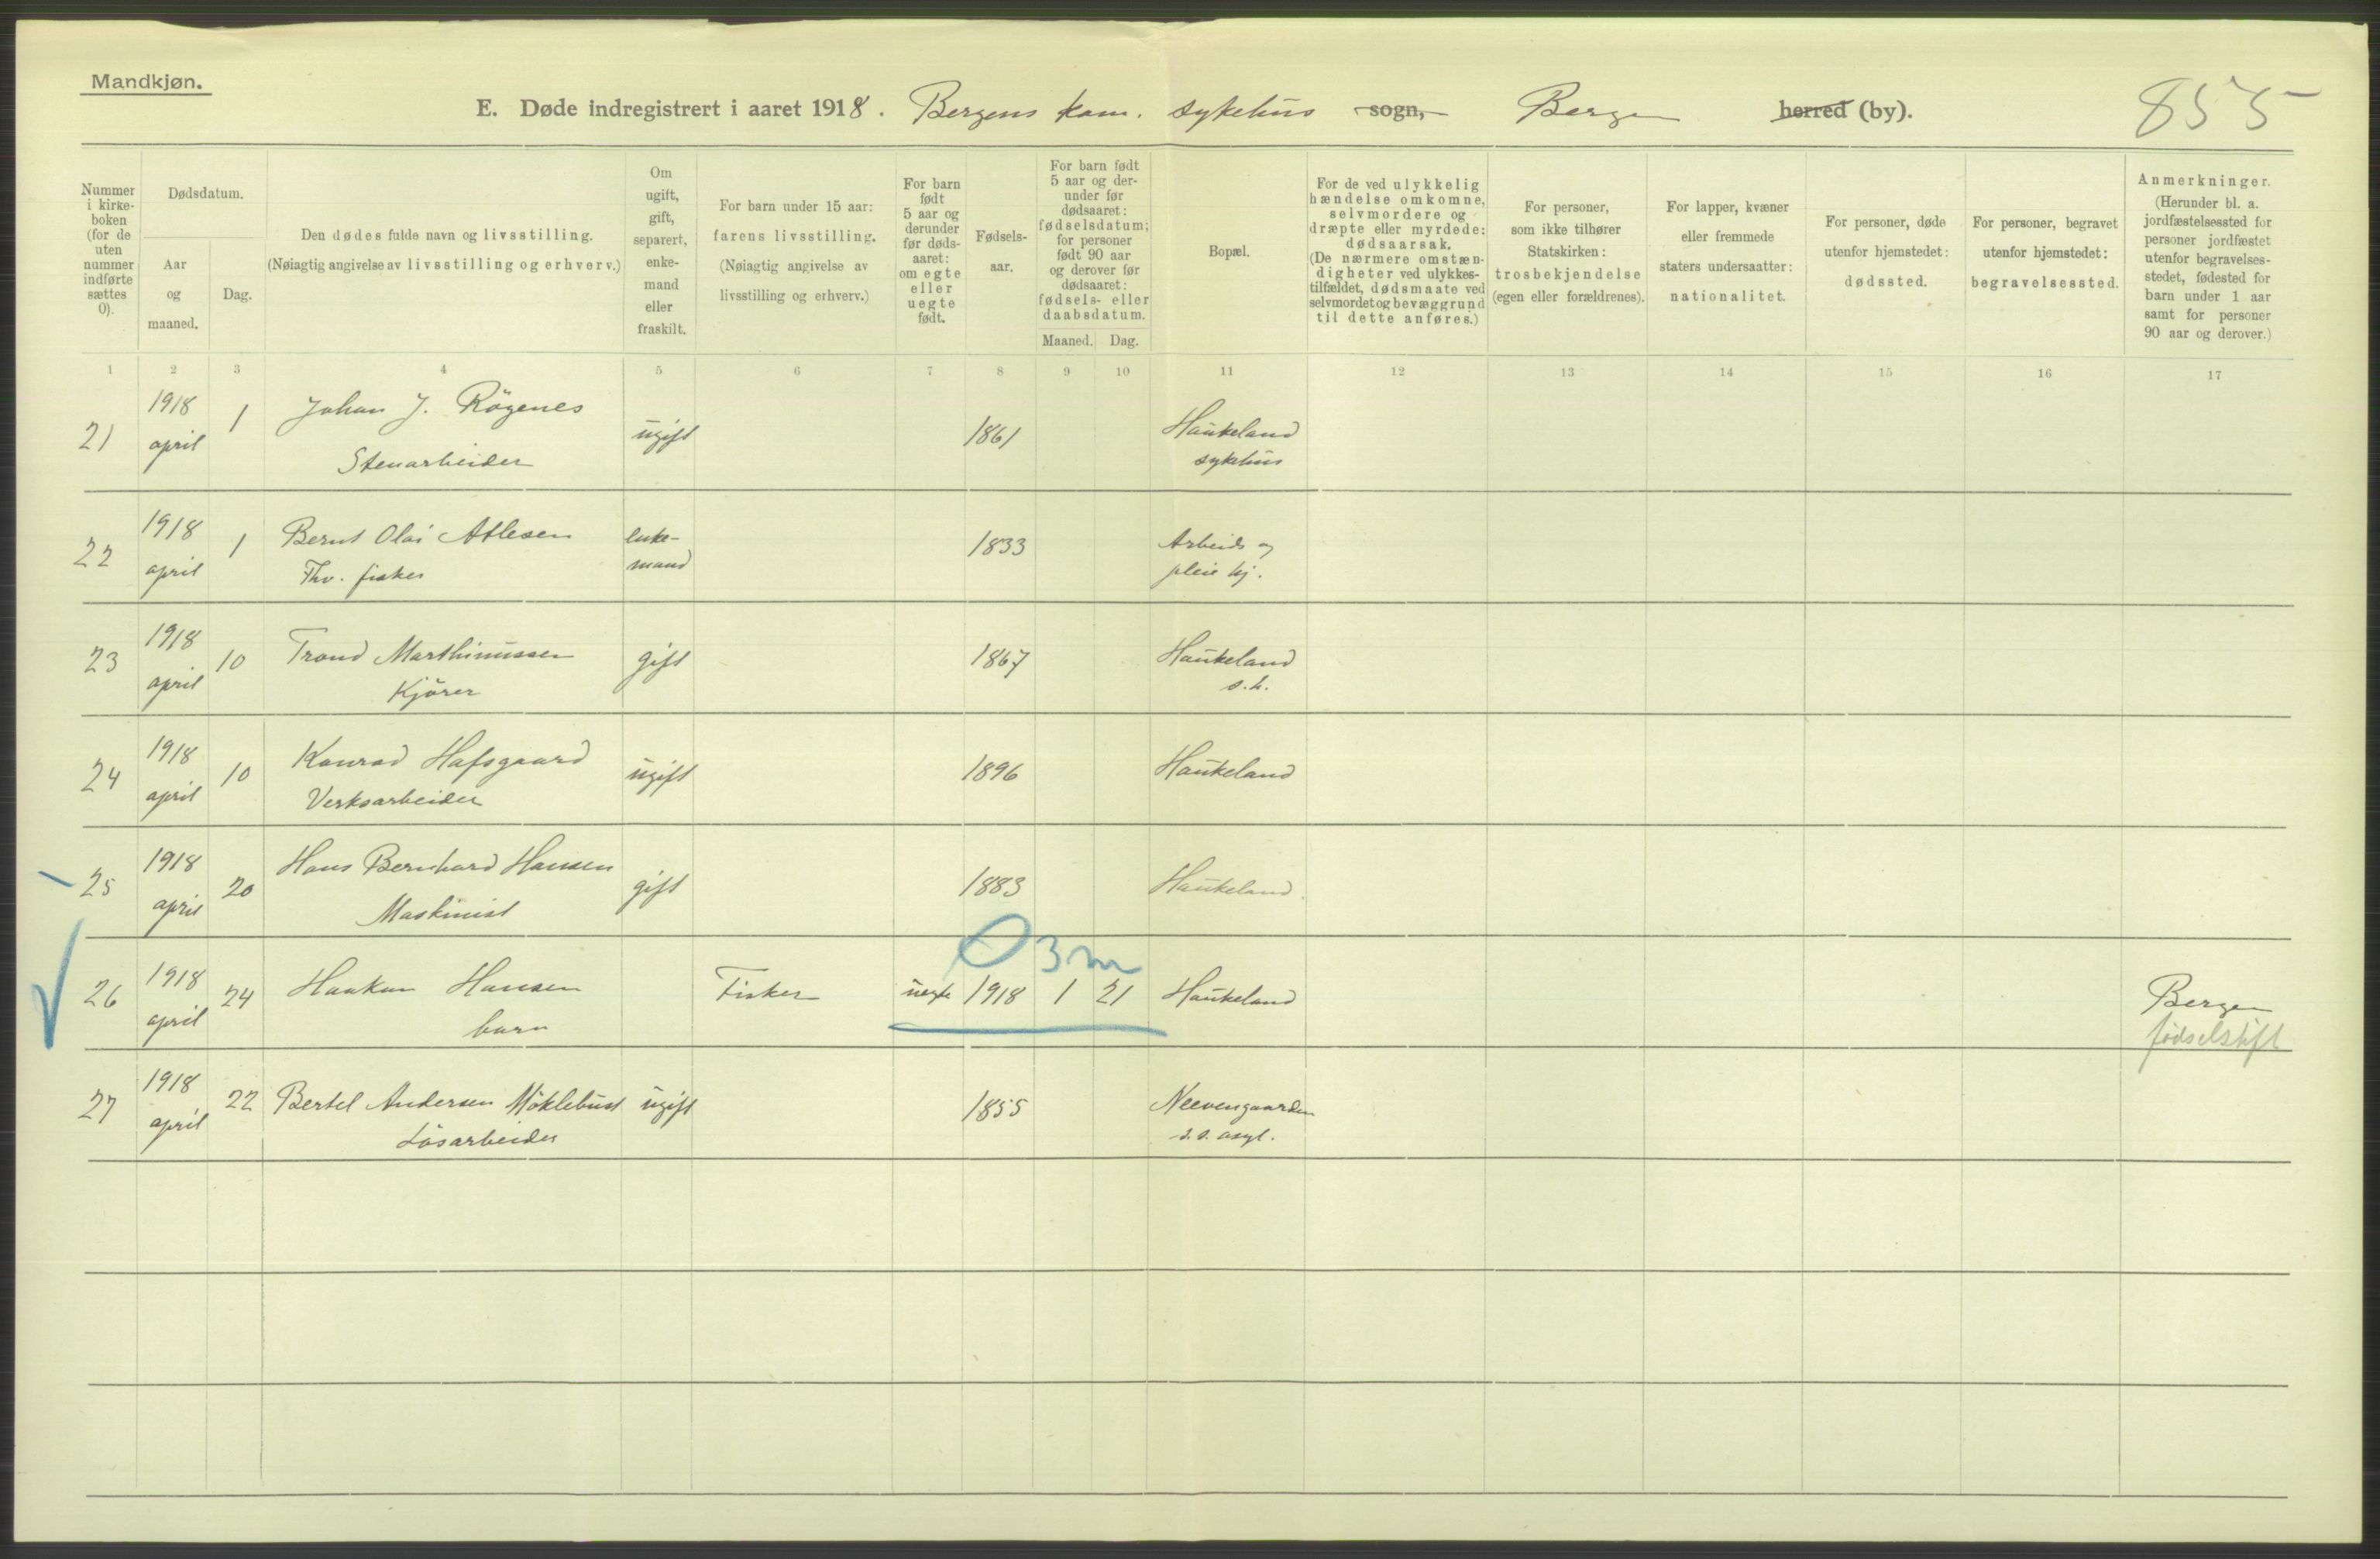 Mandkjøn.
E. Døde indregistrert i aaret 1918. Bergens kom. sykehus sogn, Bergen herred (by).
855
Nummer i kirke-boken (for de uten nummer indførte sættes 0).
Dødsdatum.
Aar og maaned.
Dag.
Den dødes fulde navn og livsstilling.
(Nøiagtig angivelse av livsstilling og erhverv.)
Om ugift, gift, separert, enke-mand eller fraskilt.
For barn under 15 aar: farens livsstilling.
(Nøiagtig angivelse av livsstilling og erhverv.)
For barn født 5 aar og derunder før døds-aaret: om egte eller uegte født.
Fødsels-aar.
For barn født 5 aar og der-under før dødsaaret: fødselsdatum; for personer født 90 aar og derover før dødsaaret: fødsels- eller daabsdatum.
Maaned. Dag.
Bopæl.
For de ved ulykkelig hændelse omkomne, selvmordere og dræpte eller myrdede: dødsaarsak.
(De nærmere omstæn-digheter ved ulykkes-tilfældet, dødsmaate ved selvmordet og bevæggrund til dette anføres.)
For personer, som ikke tilhører Statskirken: trosbekjendelse (egen eller forældrenes).
For lapper, kvæner eller fremmede staters undersaatter: nationalitet.
For personer, døde utenfor hjemstedet: dødssted.
For personer, begravet utenfor hjemstedet: begravelsessted.
Anmerkninger.
(Herunder bl. a. jordfæstelsessted for personer jordfæstet utenfor begravelses-stedet, fødested for barn under 1 aar samt for personer 90 aar og derover.)
1 2 3 4 5 6 7 8 9 10 11 12 13 14 15 16 17
21 1918 april 1 Johan J. Rögenes ugift 1861 Haukeland
Stenarbeider sykehus
22 1918 april 1 Bernt Olai Atlesen enke-mand 1833 Arbeids og
Fhv. fisker pleie hj.
23 1918 april 10 Trond Marthinussen gift 1867 Haukeland
Kjörer s.h.
24 1918 april 10 Konrad Hafsgaard ugift 1896 Haukeland
Verksarbeider
25 1918 april 20 Hans Bernhard Hansen gift 1883 Haukeland.
Maskinist
0 3 m
26 1918 april 24 Haakon Hansen Fisker uegte 1918 1 21 Haukeland Bergen
barn fødselstift
27 1918 april 22 Bertel Andersen Möklebust ugift 1855 Neevengaarden
Lösarbeider s.s. asyl.